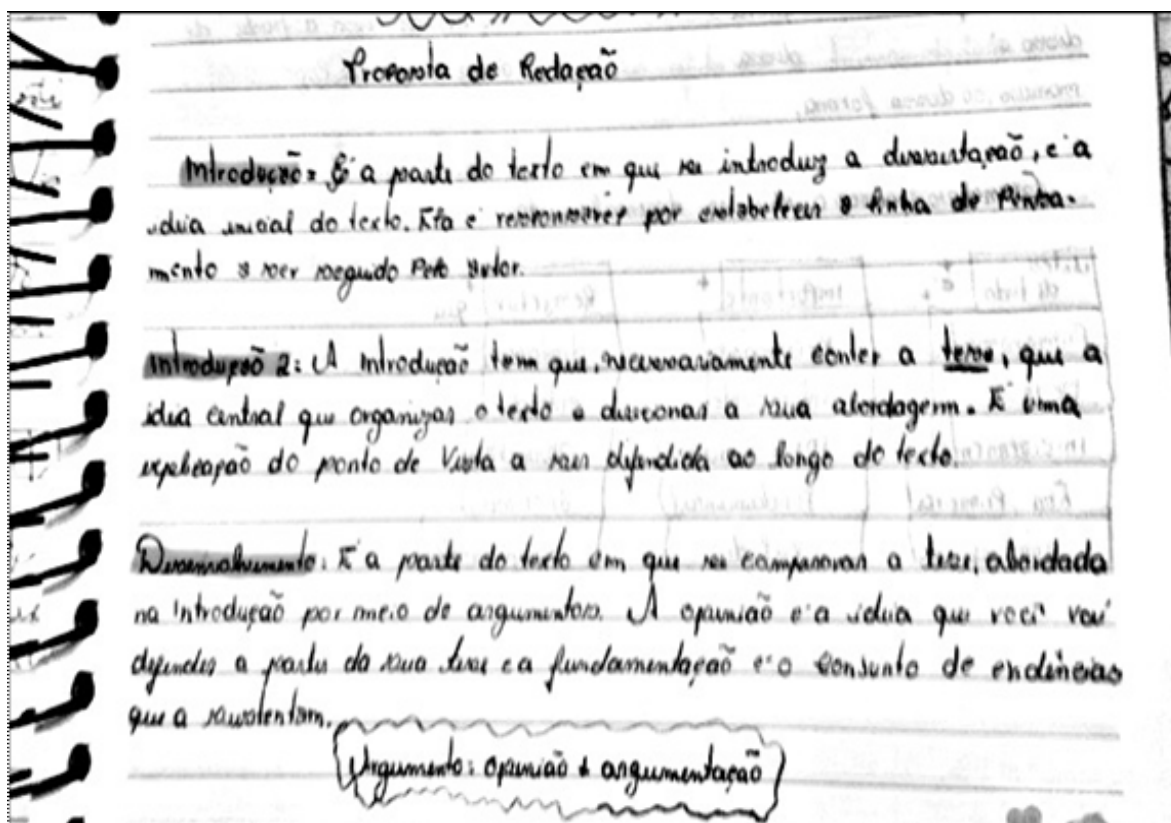 Proposta de Redação
Introdução: É a parte do texto em que se introduz a dissertação, e a
ideia inicial do texto. Ela é responsável por estabelecer a linha de Pensa-
mento a ser seguido Pelo autor.
Introdução 2: A introdução tem que, necessariamente conter a tese, que a
ideia central que organizar o texto e direcionar a sua abordagem. É uma
explicação do ponto de Vista a ser defendida ao longo do texto.
Desenvolvimento: É a parte do texto em que se comprovar a tese, abordada
na introdução por meio de argumentos. A opinião é a ideia que você vai
defender a partir da sua tese e a fundamentação é o conjunto de evidências
que a sustentam.
Argumento: opinião + argumentação